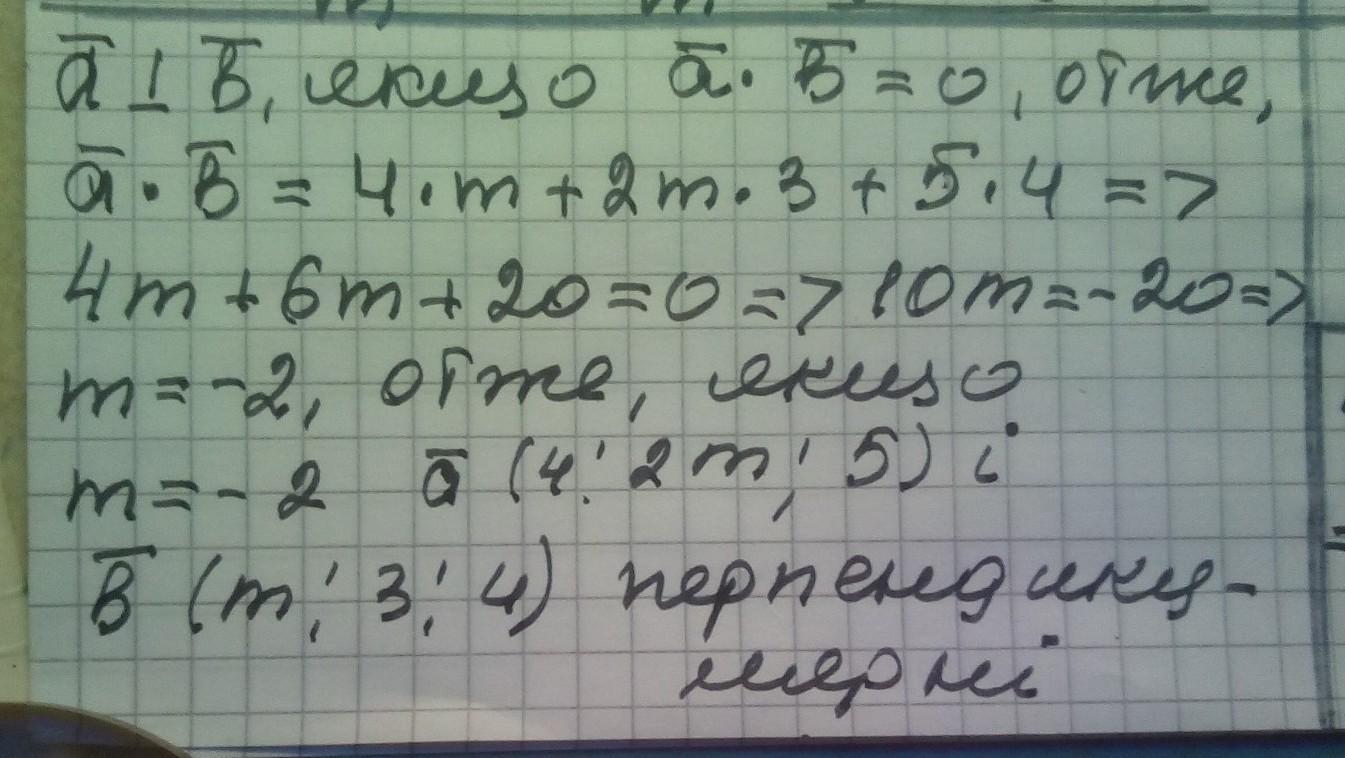 a̅ ⊥ b̅, якщо a̅ · b̅ = 0, отже,
a̅ · b̅ = 4 · m + 2m · 3 + 5 · 4 =>
4m + 6m + 20 = 0 => 10m = -20 =>
m = -2, отже, якщо
m = -2 a̅ (4; 2m; 5) і
b̅ (m; 3; 4) перпендику-
лярні